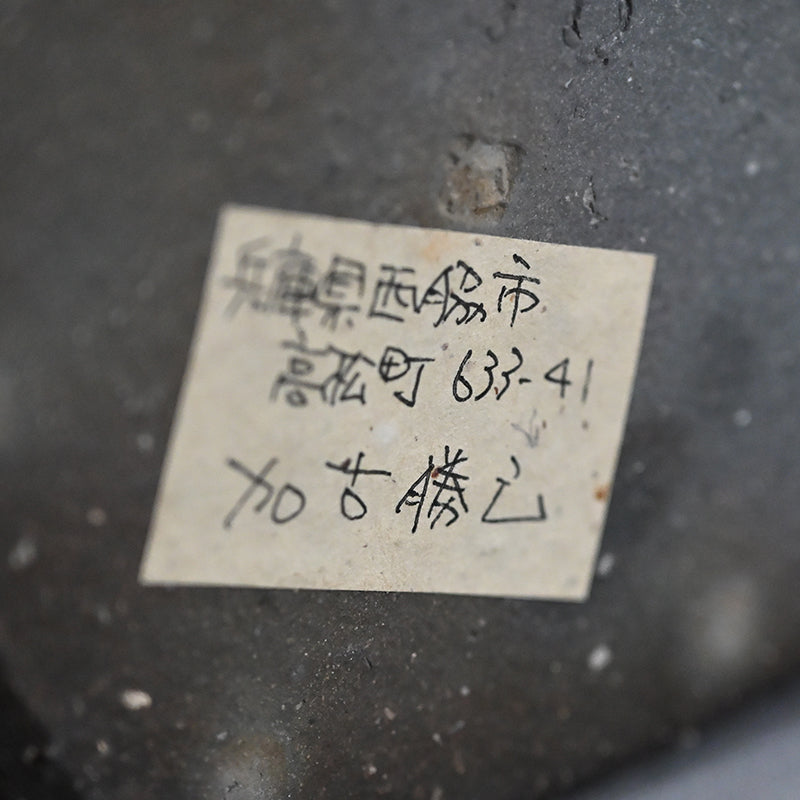 兵庫県西脇市
高松町 633-41
加古勝己